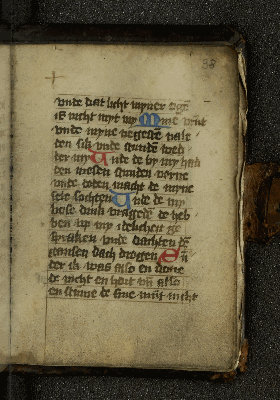 38
vnde dat licht myner oge
is nicht myt my Myne vrūt
vnde myne negeste nale
den sik vnde stunden wed
der my Vnde de by my had
den wesen stunden verne
vnde deden macht de myne
sele sochten Vnde de my
bose dink vrageden de heb
ben vp my idelicheit ge
spraken vnde dachten dē
gansen dach drogen S ū
der ik was also en douue
de nicht en hort vn̄ also
en stūme de sine mūt nicht